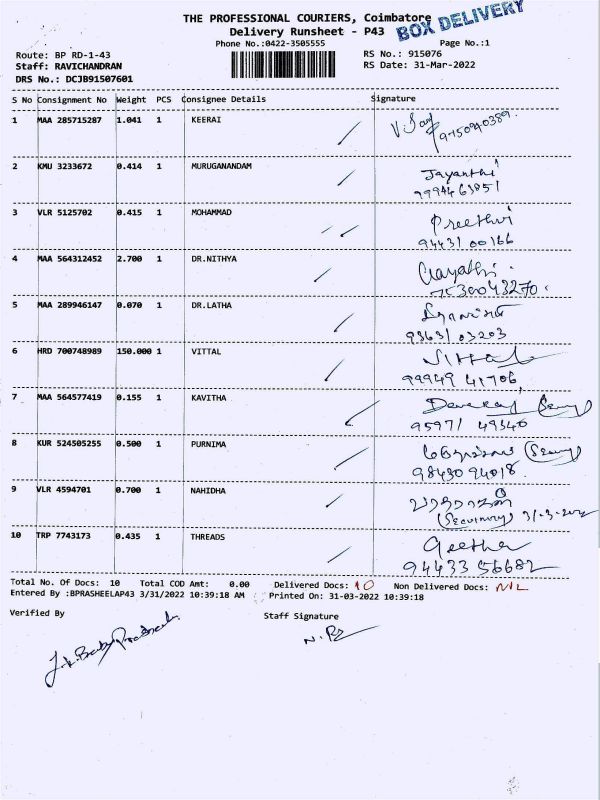 THE PROFESSIONAL COURIERS, Coimbatore
BOX DELIVERY
Delivery Runsheet - P43
Phone No.:0422-3505555
Page No.:1
Route: BP RD-1-43
RS No.: 915076
Staff: RAVICHANDRAN
RS Date: 31-Mar-2022
DRS No.: DCJB91507601
S No Consignment No Weight PCS Consignee Details Signature
1 MAA 285715287 1.041 1 KEERAI
2 KMU 3233672 0.414 1 MURUGANANDAM Jayanthi
3 VLR 5125702 0.415 1 MOHAMMAD Preethvi
94431 00166
4 MAA 564312452 2.700 1 DR.NITHYA Gayathi
7530043270
5 MAA 289946147 0.070 1 DR.LATHA
93631 03203
6 HRD 700748989 150.000 1 VITTAL Vittal
99949 41706
7 MAA 564577419 0.155 1 KAVITHA
95971 49340
8 KUR 524505255 0.500 1 PURNIMA
98430 94018
9 VLR 4594701 0.700 1 NAHIDHA
(Security) 31-3-2022
10 TRP 7743173 0.435 1 THREADS Geetha
94433 56682
Total No. Of Docs: 10 Total COD Amt: 0.00 Delivered Docs: 10 Non Delivered Docs: NIL
Entered By :BPRASHEELAP43 3/31/2022 10:39:18 AM Printed On: 31-03-2022 10:39:18
Verified By
Staff Signature